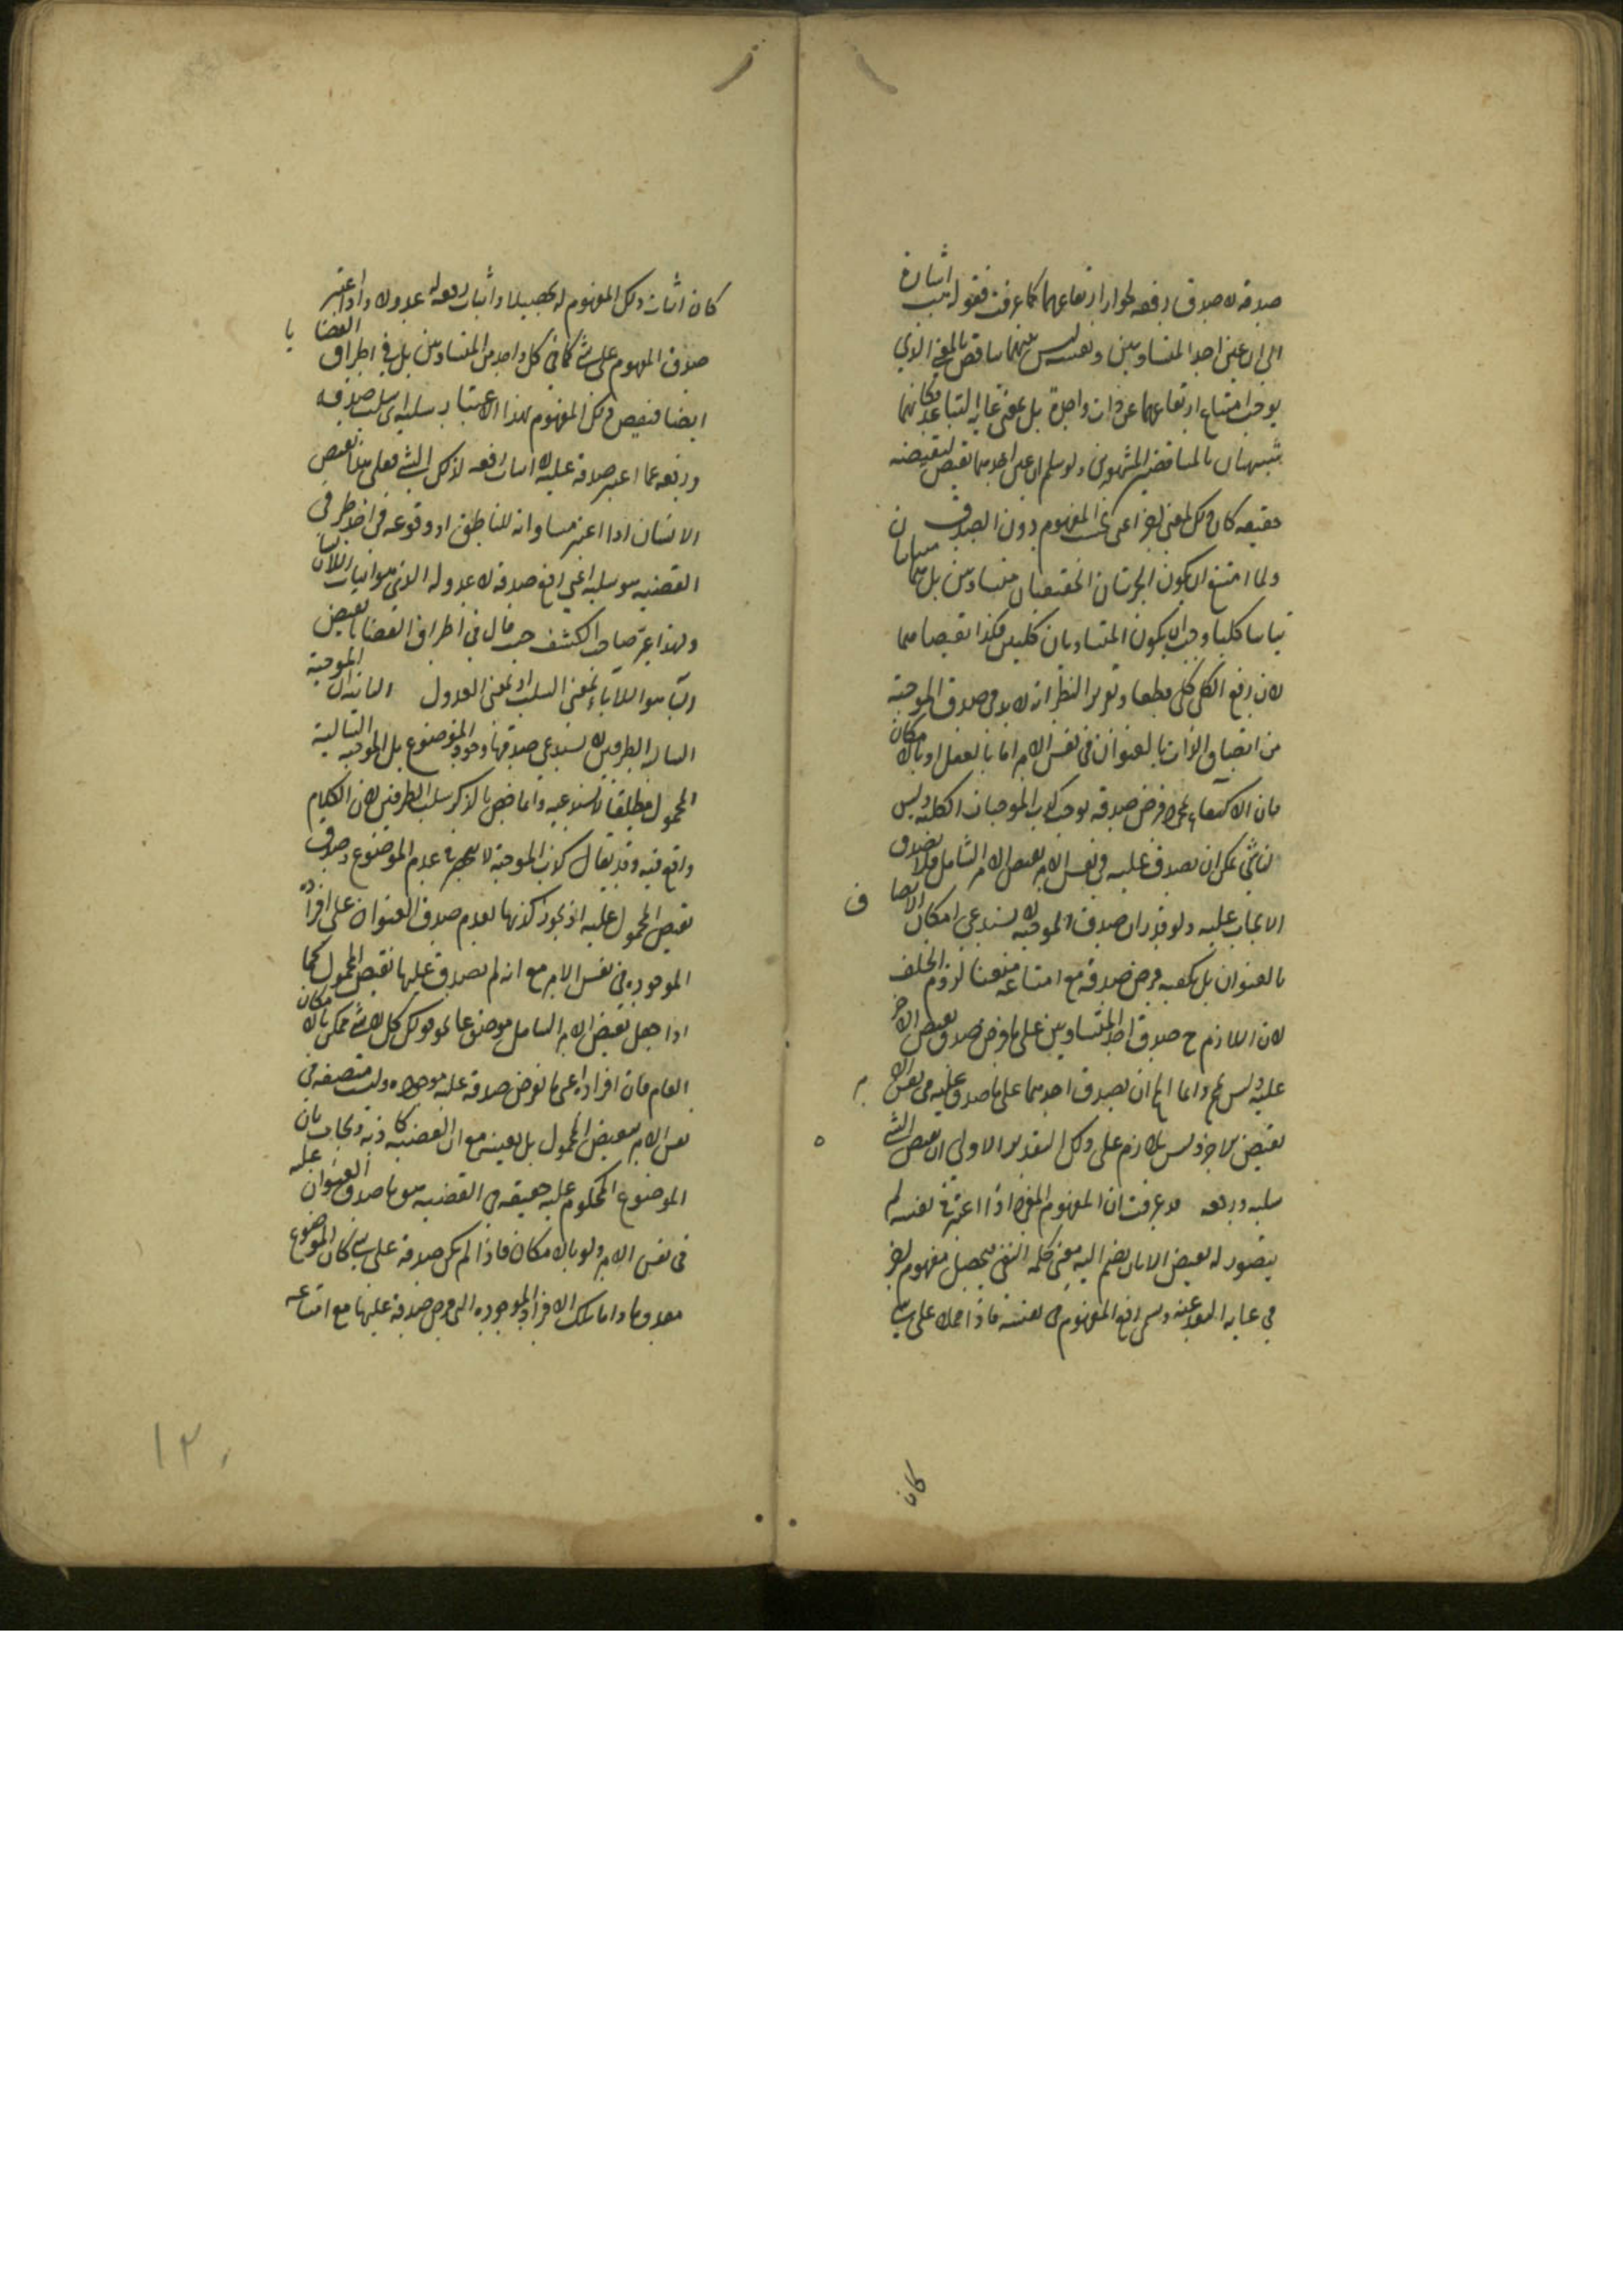 صدقه لا صدق رفعه لجواز ارتفاعهما كما عرفت فقوله اشارة
الى ان عين احد المتساويين ونقيضه ليس بينهما تناقض بالمعنى الذي
يوجب امتناع ارتفاعهما عن ذات واحدة بل بمعنى غاية التباعد فكانهما
شبيهان بالمتناقضين المشهورين ولو سلم ان عين احدهما نقيض لنقيضه
حقيقة كان ذلك بمعنى اخر اعنى بحسب المفهوم دون الصدق
ولما امتنع ان يكون الجزئيان الحقيقيان متساويين بل هما متباينان
تباينا كليا وجب ان يكون المتساويان كليين فكذا نقيضاهما
لان رفع الكلي كلي قطعا وتقرير النظر انه لا بد في صدق الموجبة
من اتصاف الذات بالعنوان في نفس الامر اما بالفعل او بالامكان
فان الاكتفاء بمجرد فرض صدقه يوجب كذب الموجبات الكلية وليس
شئ يمكن ان يصدق عليه في نفس الامر نقيض الامر الشامل فلا يصدق
الايجاب عليه ولو قدر ان صدق الموجبة لا يستدعي امكان الاتصاف
بالعنوان بل يكفيه فرض صدقه مع امتناعه منعنا لزوم الخلف
لان اللازم ح صدق احد المتساويين على ما فرض صدق نقيض الاخر
عليه وليس بمح وانما المح ان يصدق احدهما على ما صدق عليه في نفس الامر
نقيض الاخر وليس بلازم على ذلك التقدير الاولى ان نقيض الشئ
سلبه ورفعه قد عرفت ان المفهوم المفرد اذا اعتبر في نفسه لم
يتصور له نقيض الا بان يضم اليه معنى كلمة النفي فيحصل مفهوم اخر
في غاية البعد عنه ويسمى رفع المفهوم في نفسه فاذا حملا على شئ
كان
كان اثبات ذلك المفهوم له تحصيلا واثبات رفعه له عدولا واذا اعتبر
صدق المفهوم على شئ كما في كل واحد من المتساويين بل في اطراف القضايا
ايضا فنقيض ذلك المفهوم بهذا الاعتبار سلبه اى سلب صدقه
ورفعه عما اعتبر صدقه عليه لا اثبات رفعه لذلك الشئ فعلى هذا نقيض
الانسان اذا اعتبر مساواته للناطق او وقوعه في احد طرفي
القضية هو سلبه اعني رفع صدقه لا عدوله الذي هو اثبات اللاانسان
ولهذا عبر صاحب الكشف حيث قال في اطراف القضايا نقيض
الباء هو اللاباء بمعنى السلب لا بمعنى العدول الثانية ان الموجبة
السالبة الطرفين لا يستدعي صدقها وجود الموضوع بل الموجبة السالبة
المحمول مطلقا لا تستدعيه وانما خص بالذكر سلب الطرفين لان الكلام
واقع فيه وقد يقال كذب الموجبة لا ينحصر في عدم الموضوع وصدق
نقيض المحمول عليه اذ يجوز كذبها لعدم صدق العنوان على افراده
الموجودة في نفس الامر مع انه لم يصدق عليها نقيض المحمول كما
اذا جعل نقيض الامر الشامل موضوعا نحو قولك كل لا شئ ممكن بالامكان
العام فان افراده اعنى ما يفرض صدقه عليه موجودة وليست متصفة في
نفس الامر بنقيض المحمول بل بعينه مع ان القضية كاذبة ويجاب بان
الموضوع المحكوم عليه حقيقة في القضية هو ما صدق عليه العنوان
في نفس الامر ولو بالامكان فاذا لم يكن صدقه على شئ كان الموضوع
معدوما واما تلك الافراد الموجودة التي فرض صدقه عليها مع امتناعه
١٢٠